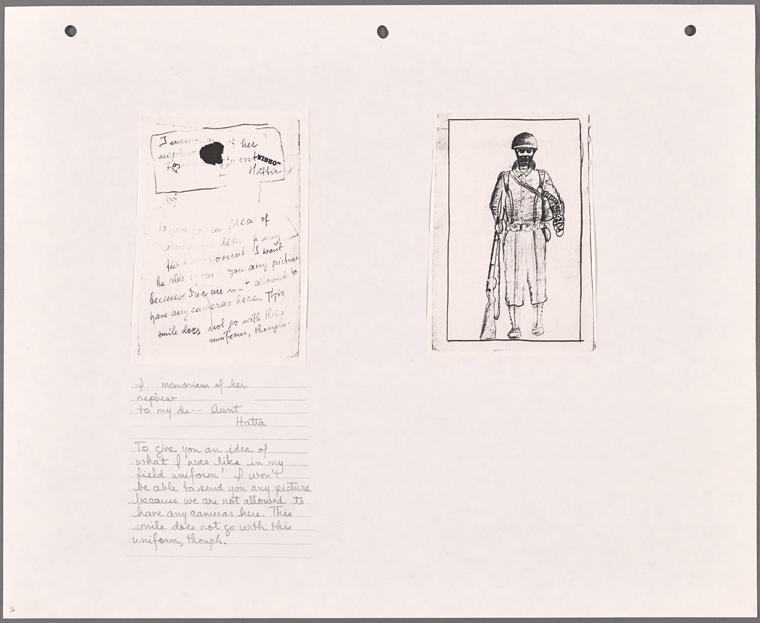 I
of her
Hattie
idea of
I won't
be able
you any picture
because we are not allowed to
have any cameras here. This
smile does not go with this
uniform, though.
I... memoriam of her
nephew
to my de-- Aunt
Hatta
To give you an idea of
what I was like in my
field uniform! I won't
be able to send you any picture
because we are not allowed to
have any cameras here. This
smile does not go with this
uniform, though.